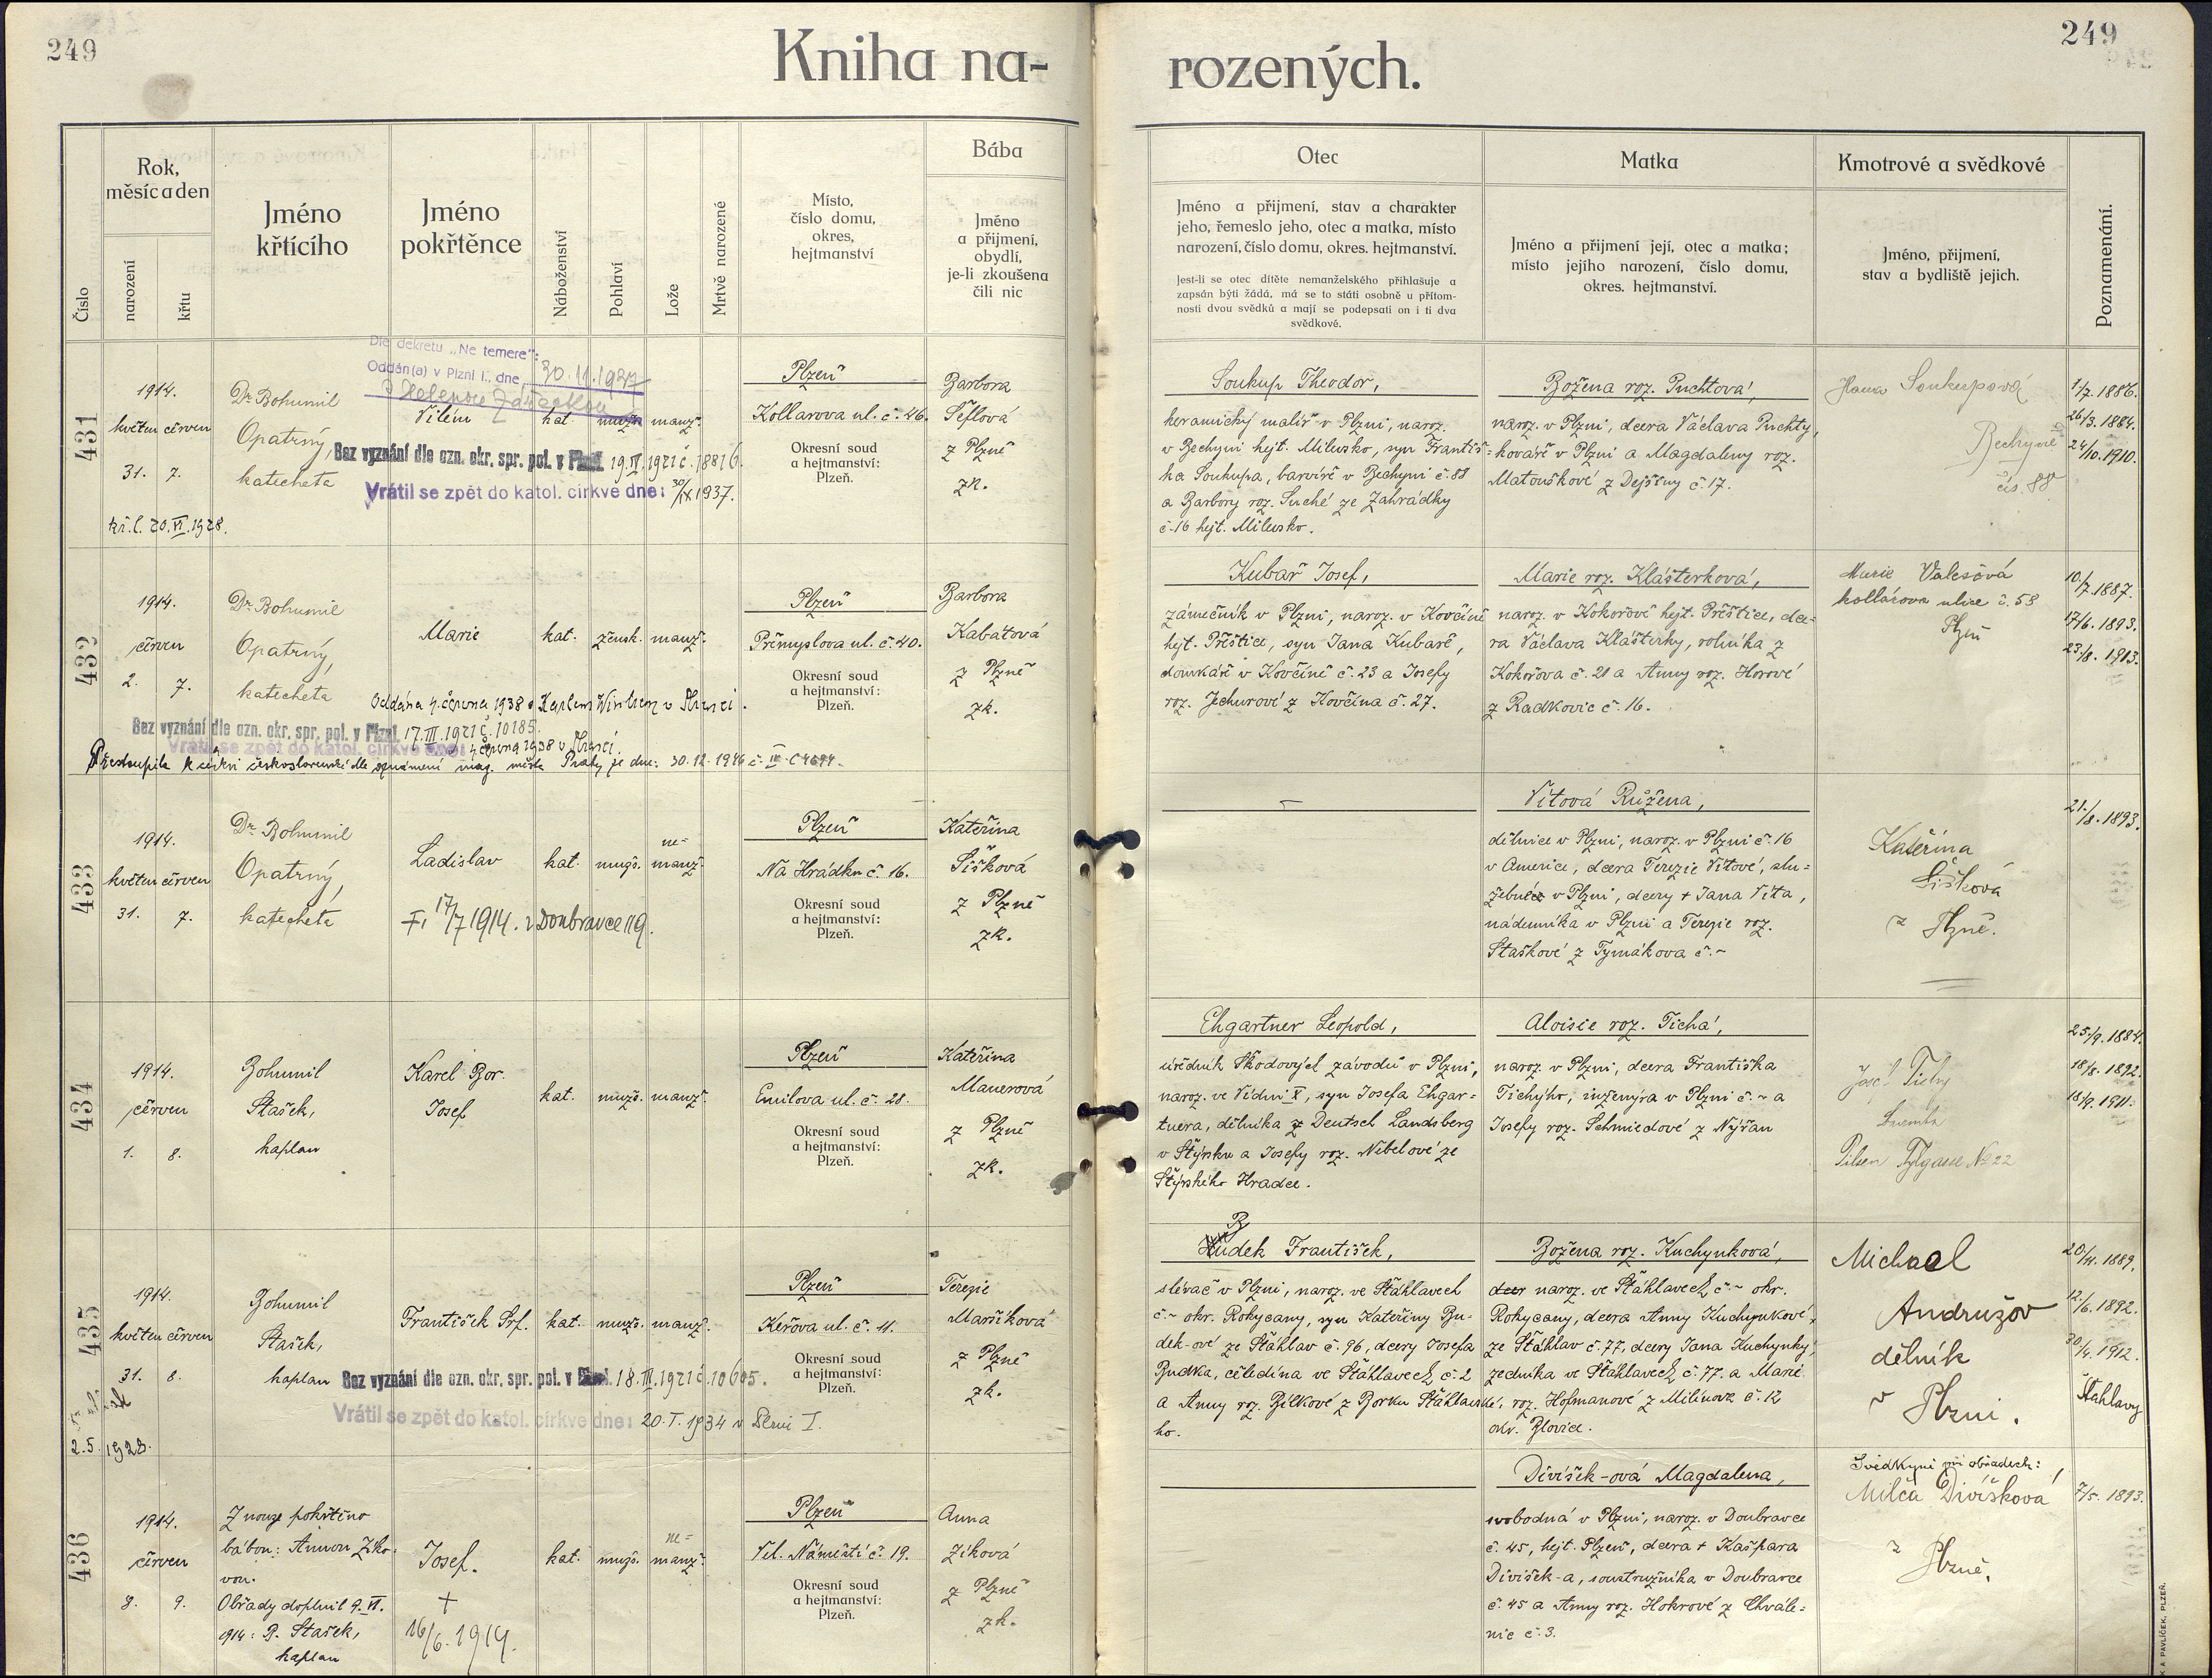 249
Kniha na-
rozených.
249
Číslo
Rok,
měsíc a den
narození
křtu
Jméno
křtícího
Jméno
pokřtěnce
Náboženství
Pohlaví
Lože
Mrtvě narozené
Místo,
číslo domu,
okres,
hejtmanství
Bába
Jméno
a přijmení,
obydlí,
je-li zkoušena
čili nic
Otec
Jméno a přijmení, stav a charakter
jeho, řemeslo jeho, otec a matka, místo
narození, číslo domu, okres. hejtmanství.
Jest-li se otec dítěte nemanželského přihlašuje a
zapsán býti žádá, má se to státi osobně u přítom-
nosti dvou svědků a mají se podepsati on i ti dva
svědkové.
Matka
Jméno a přijmení její, otec a matka;
místo jejího narození, číslo domu,
okres. hejtmanství.
Kmotrové a svědkové
Jméno, přijmení,
stav a bydliště jejich.
Poznamenání.
431
1914.
květen červen
31. 7.
kř. l. 20.VI.1928.
Dr. Bohumil
Opatrný,
katecheta
Dle dekretu „Ne temere":
Oddán(a) v Plzni I., dne 30.11.1937
s Helenou
Vilém
kat. mužs. manž.
Bez vyznání dle ozn. okr. spr. pol. v Plzni 19.IV.1921 č. 18816.
Vrátil se zpět do katol. církve dne: 30/IX 1937.
Plzeň
Kollarova ul. č. 46.
Okresní soud
a hejtmanství:
Plzeň.
Barbora
Šeflová
z Plzně
zk.
Soukup Theodor,
keramický malíř v Plzni, naroz.
v Bechyni hejt. Milevsko, syn Františ-
ka Soukupa, barvíře v Bechyni č. 88
a Barbory roz. Suché ze Zahrádky
č. 16 hejt. Milevsko.
Božena roz. Puchtová,
naroz. v Plzni, dcera Václava Puchty,
kováře v Plzni a Magdaleny roz.
Matouškové z Dejšiny č. 17.
Hana Soukupová
Bechyně
čís. 88
1/7. 1886.
26/3. 1884.
24/10. 1910.
432
1914.
červen
2. 7.
Dr. Bohumil
Opatrný,
katecheta
Marie
kat. žensk. manž.
Oddána 4. června 1938 s Karlem
Bez vyznání dle ozn. okr. spr. pol. v Plzni 17.III.1921 č. 10185.
Vrátil se zpět do katol. církve dne: 4. června 1938 v
Přestoupila k církvi československé dle oznámení mag. města Prahy ze dne: 30.12.1946 č.
Plzeň
Přemyslova ul. č. 40.
Okresní soud
a hejtmanství:
Plzeň.
Barbora
Kabátová
z Plzně
zk.
Kubař Josef,
zámečník v Plzni, naroz. v Kovčíně
hejt. Přeštice, syn Jana Kubaře,
domkáře v Kovčíně č. 23 a Josefy
roz. Jechurové z Kovčína č. 27.
Marie roz. Klášterková,
naroz. v Kokořově hejt. Přeštice, dce-
ra Václava Klášterky, rolníka z
Kokořova č. 21 a Anny roz. Horové
z Radkovic č. 16.
Marie Valešová
kollárova ulice č. 58
Plzeň
10/7. 1887.
17/6. 1893.
23/8. 1913.
433
1914.
květen červen
31. 7.
Dr. Bohumil
Opatrný,
katecheta
Ladislav
†, 17/7 1914. v Doubravce 119.
kat. mužs. ne-
manž.
Plzeň
Na Hrádku č. 16.
Okresní soud
a hejtmanství:
Plzeň.
Kateřina
Šišková
z Plzně
zk.
Vítová Růžena,
dělnice v Plzni, naroz. v Plzni č. 16
v Americe, dcera Terezie Vítové, slu-
žebné v Plzni, dcery † Jana Víta,
nádeníka v Plzni a Terezie roz.
Staškové z Tymákova č. ~
Kateřina
Šišková
z Plzně.
21/8. 1893.
434
1914.
červen
1. 8.
Bohumil
Stašek,
kaplan
Karel Bor.
Josef
kat. mužs. manž.
Plzeň
Emilova ul. č. 28.
Okresní soud
a hejtmanství:
Plzeň.
Kateřina
Mauerová
z Plzně
zk.
Ehgartner Leopold,
úředník Škodových závodů v Plzni,
naroz. ve Vídni X, syn Josefa Ehgar-
tnera, dělníka z Deutsch Landsberg
v Štýrsku a Josefy roz. Nibelové ze
Štýrského Hradce.
Aloisie roz. Tichá,
naroz. v Plzni, dcera Františka
Tichýho, inženýra v Plzni č. ~ a
Josefy roz. Schmiedové z Nýřan
Josef Tichy
Pilsen Tylgasse No 22
25/9. 1884.
18/8. 1892.
18/9. 1911.
435
1914.
květen červen
31. 8.
2.5. 1928.
Bohumil
Stašek,
kaplan
František Srf.
kat. mužs. manž.
Bez vyznání dle ozn. okr. spr. pol. v Plzni 18.III.1921 č. 10605.
Vrátil se zpět do katol. církve dne: 20.I.1934 v Plzni I.
Plzeň
Keřova ul. č. 11.
Okresní soud
a hejtmanství:
Plzeň.
Terezie
Maříková
z Plzně
zk.
B
Hudek František,
slévač v Plzni, naroz. ve Štáhlavech
č. ~ okr. Rokycany, syn Kateřiny Bu-
dek-ové ze Štáhlav č. 96, dcery Josefa
Budka, čeledína ve Štáhlavech č. 2
a Anny roz. Bílkové z Borku Štáhlavské-
ho.
Božena roz. Kuchynková,
dcer naroz. ve Štáhlavech č. ~ okr.
Rokycany, dcera Anny Kuchynkové,
ze Štáhlav č. 77, dcery Jana Kuchynky,
zedníka ve Štáhlavech č. 77. a Marie
roz. Hofmanové z Milínova č. 12
okr. Blovice.
Michael
Andružov
dělník
v Plzni.
20/11. 1889.
12/6. 1892.
30/4. 1912.
Štáhlavy
436
1914.
červen
8. 9.
Z nouze pokřtěno
bábou: Annou Ziko-
vou.
Obřady doplnil 9.VI.
1914: B. Stašek,
kaplan
Josef.
†
16/6. 1914.
kat. mužs. ne-
manž.
Plzeň
Vel. Náměstí č. 19.
Okresní soud
a hejtmanství:
Plzeň.
Anna
Ziková
z Plzně
zk.
Divíšek-ová Magdalena,
svobodná v Plzni, naroz. v Doubravce
č. 45, hejt. Plzeň, dcera † Kašpara
Divíšek-a, soustružníka v Doubravce
č. 45 a Anny roz. Hokrové z Chvále-
nic č. 3.
Svědkyně při obřadech:
Milča Divíšková
z Plzně.
7/5. 1893.
K A PAVLÍČEK, PLZEŇ.